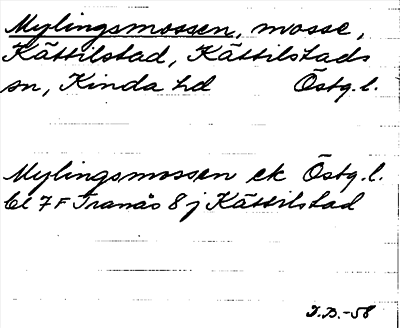 Mylingsmossen, mosse,
Kättilstad, Kättilstads
sn, Kinda hd Östg.l.
Mylingsmossen ek Östg.l.
bl 7F Tranås 8j Kättilstad
I.B.-58